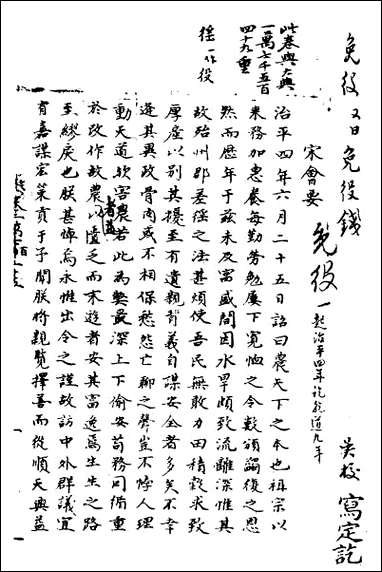 免役 又曰免役錢
吴校 寫定訖
宋會要
免役 一起治平四年訖乾道九年
此卷與大典
一萬七千五百
四十九重
徭一作役
治平四年六月二十五日詔曰農天下之本也祖宗以
來務加惠養每勤勞勉屢下寬恤之令數頒蠲復之恩
然而歷年于茲未及富盛間因水旱頗致流離深惟其
故殆州郡差徭之法甚煩使吾民無敢力田積穀求致
厚產以別其擾至有遺親背義自謀安全者多矣不幸
逢其異政骨肉或不相保愁怨亡聊之聲豈不悖人理
動天道歟害農若此為弊最深上下偷安苟務因循重
於改作故農以憚之而末遊者安其富逸焉生生之路
至繆戾也朕甚悼焉永惟出令之謹故訪中外群議宜
有嘉謀宏策貢于予聞朕將親覽擇善而從順天興益